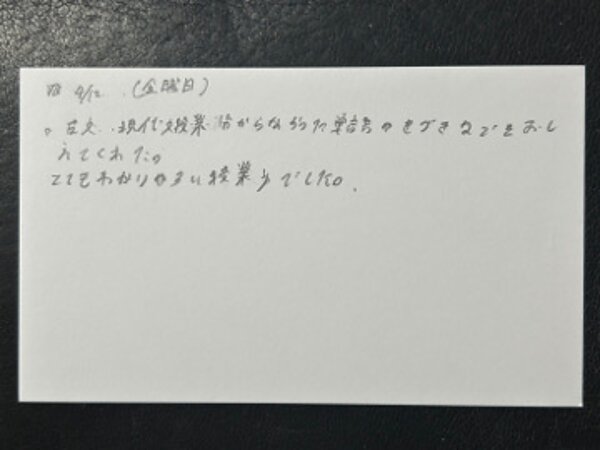 9/12 (金曜日)
。古文、現代文授業 分からなかった単語のつづきなどをおし
えてくれた。
とてもわかりやすい授業でした。